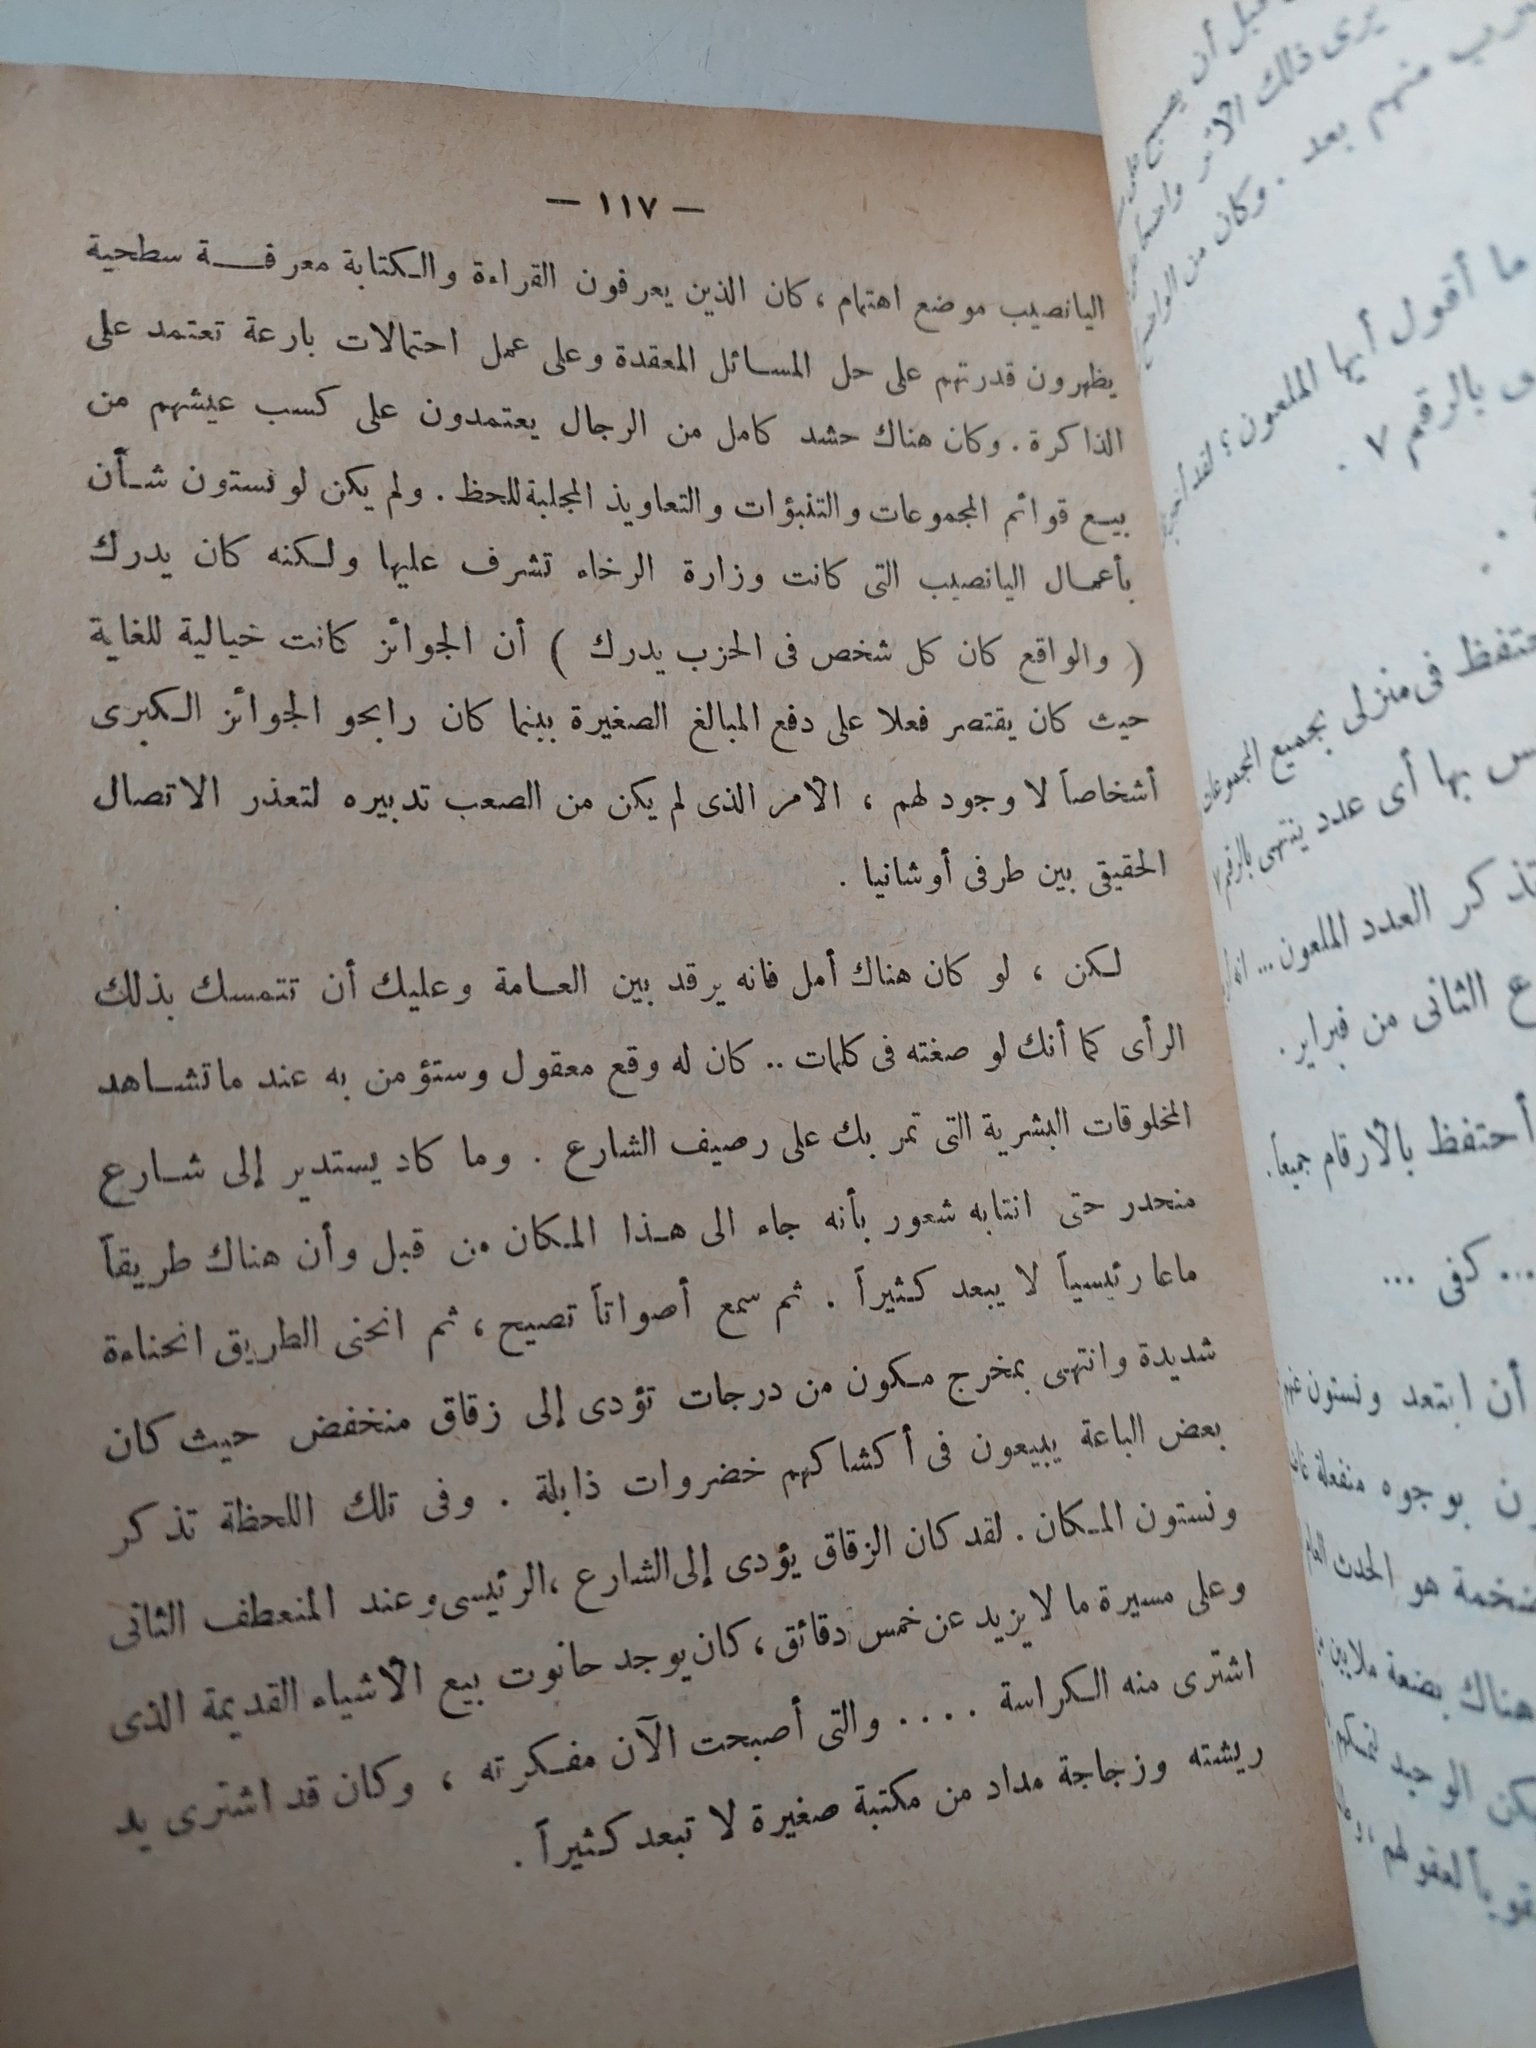 — ١١٧ —
اليانصيب موضع اهتمام ، كان الذين يعرفون القراءة والكتابة معرفة سطحية
يظهرون قدرتهم على حل المسائل المعقدة وعلى عمل احتمالات بارعة تعتمد على
الذاكرة . وكان هناك حشد كامل من الرجال يعتمدون على كسب عيشهم من
بيع قوائم المجموعات والتنبؤات والتعاويذ المجلبة للحظ . ولم يكن لونستون شأن
بأعمال اليانصيب التى كانت وزارة الرخاء تشرف عليها ولكنه كان يدرك
( والواقع كان كل شخص فى الحزب يدرك ) أن الجوائز كانت خيالية للغاية
حيث كان يقتصر فعلا على دفع المبالغ الصغيرة بينما كان رابحو الجوائز الكبرى
أشخاصاً لا وجود لهم ، الأمر الذى لم يكن من الصعب تدبيره لتعذر الاتصال
الحقيقى بين طرفى أوشانيا .
لكن ، لو كان هناك أمل فانه يرقد بين العامة وعليك أن تتمسك بذلك
الرأى كما أنك لو صغته فى كلمات .. كان له وقع معقول وستؤمن به عند ماتشاهد
المخلوقات البشرية التى تمر بك على رصيف الشارع . وما كاد يستدير إلى شارع
منحدر حتى انتابه شعور بأنه جاء الى هذا المكان من قبل وأن هناك طريقاً
ماعا رئيسياً لا يبعد كثيراً . ثم سمع أصواتاً تصيح ، ثم انحنى الطريق انحناءة
شديدة وانتهى بمخرج مكون من درجات تؤدى إلى زقاق منخفض حيث كان
بعض الباعة يبيعون فى أكشاكهم خضروات ذابلة . وفى تلك اللحظة تذكر
ونستون المكان . لقد كان الزقاق يؤدى إلى الشارع ،الرئيسى وعند المنعطف الثانى
وعلى مسيرة ما لا يزيد عن خمس دقائق ، كان يوجد حانوت بيع الأشياء القديمة الذى
اشترى منه الكراسة .... والتى أصبحت الآن مفكرته ، وكان قد اشترى يد
ريشته وزجاجة مداد من مكتبة صغيرة لا تبعد كثيراً .
قبل أن يصبح
يرى ذلك الأثر واضحا
منهم بعد . وكان من
ما أقول أيها الملعون ؟ لقد
بالرقم ٧ .
فى منزلى بجميع المجموعات
بها أى عدد ينتهى بالرقم ٧
العدد الملعون ...
الثانى من فبراير .
أحتفظ بالأرقام جميعاً .
... كفى ...
أن ابتعد ونستون عنهم
بوجوه منفعلة
هو الحدث
هناك بضعة ملايين
الوحيد
لعقولهم ،